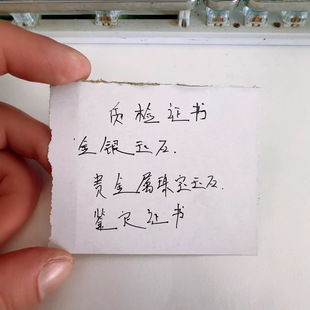 质检证书
金银玉石.
贵金属珠宝玉石.
鉴定证书